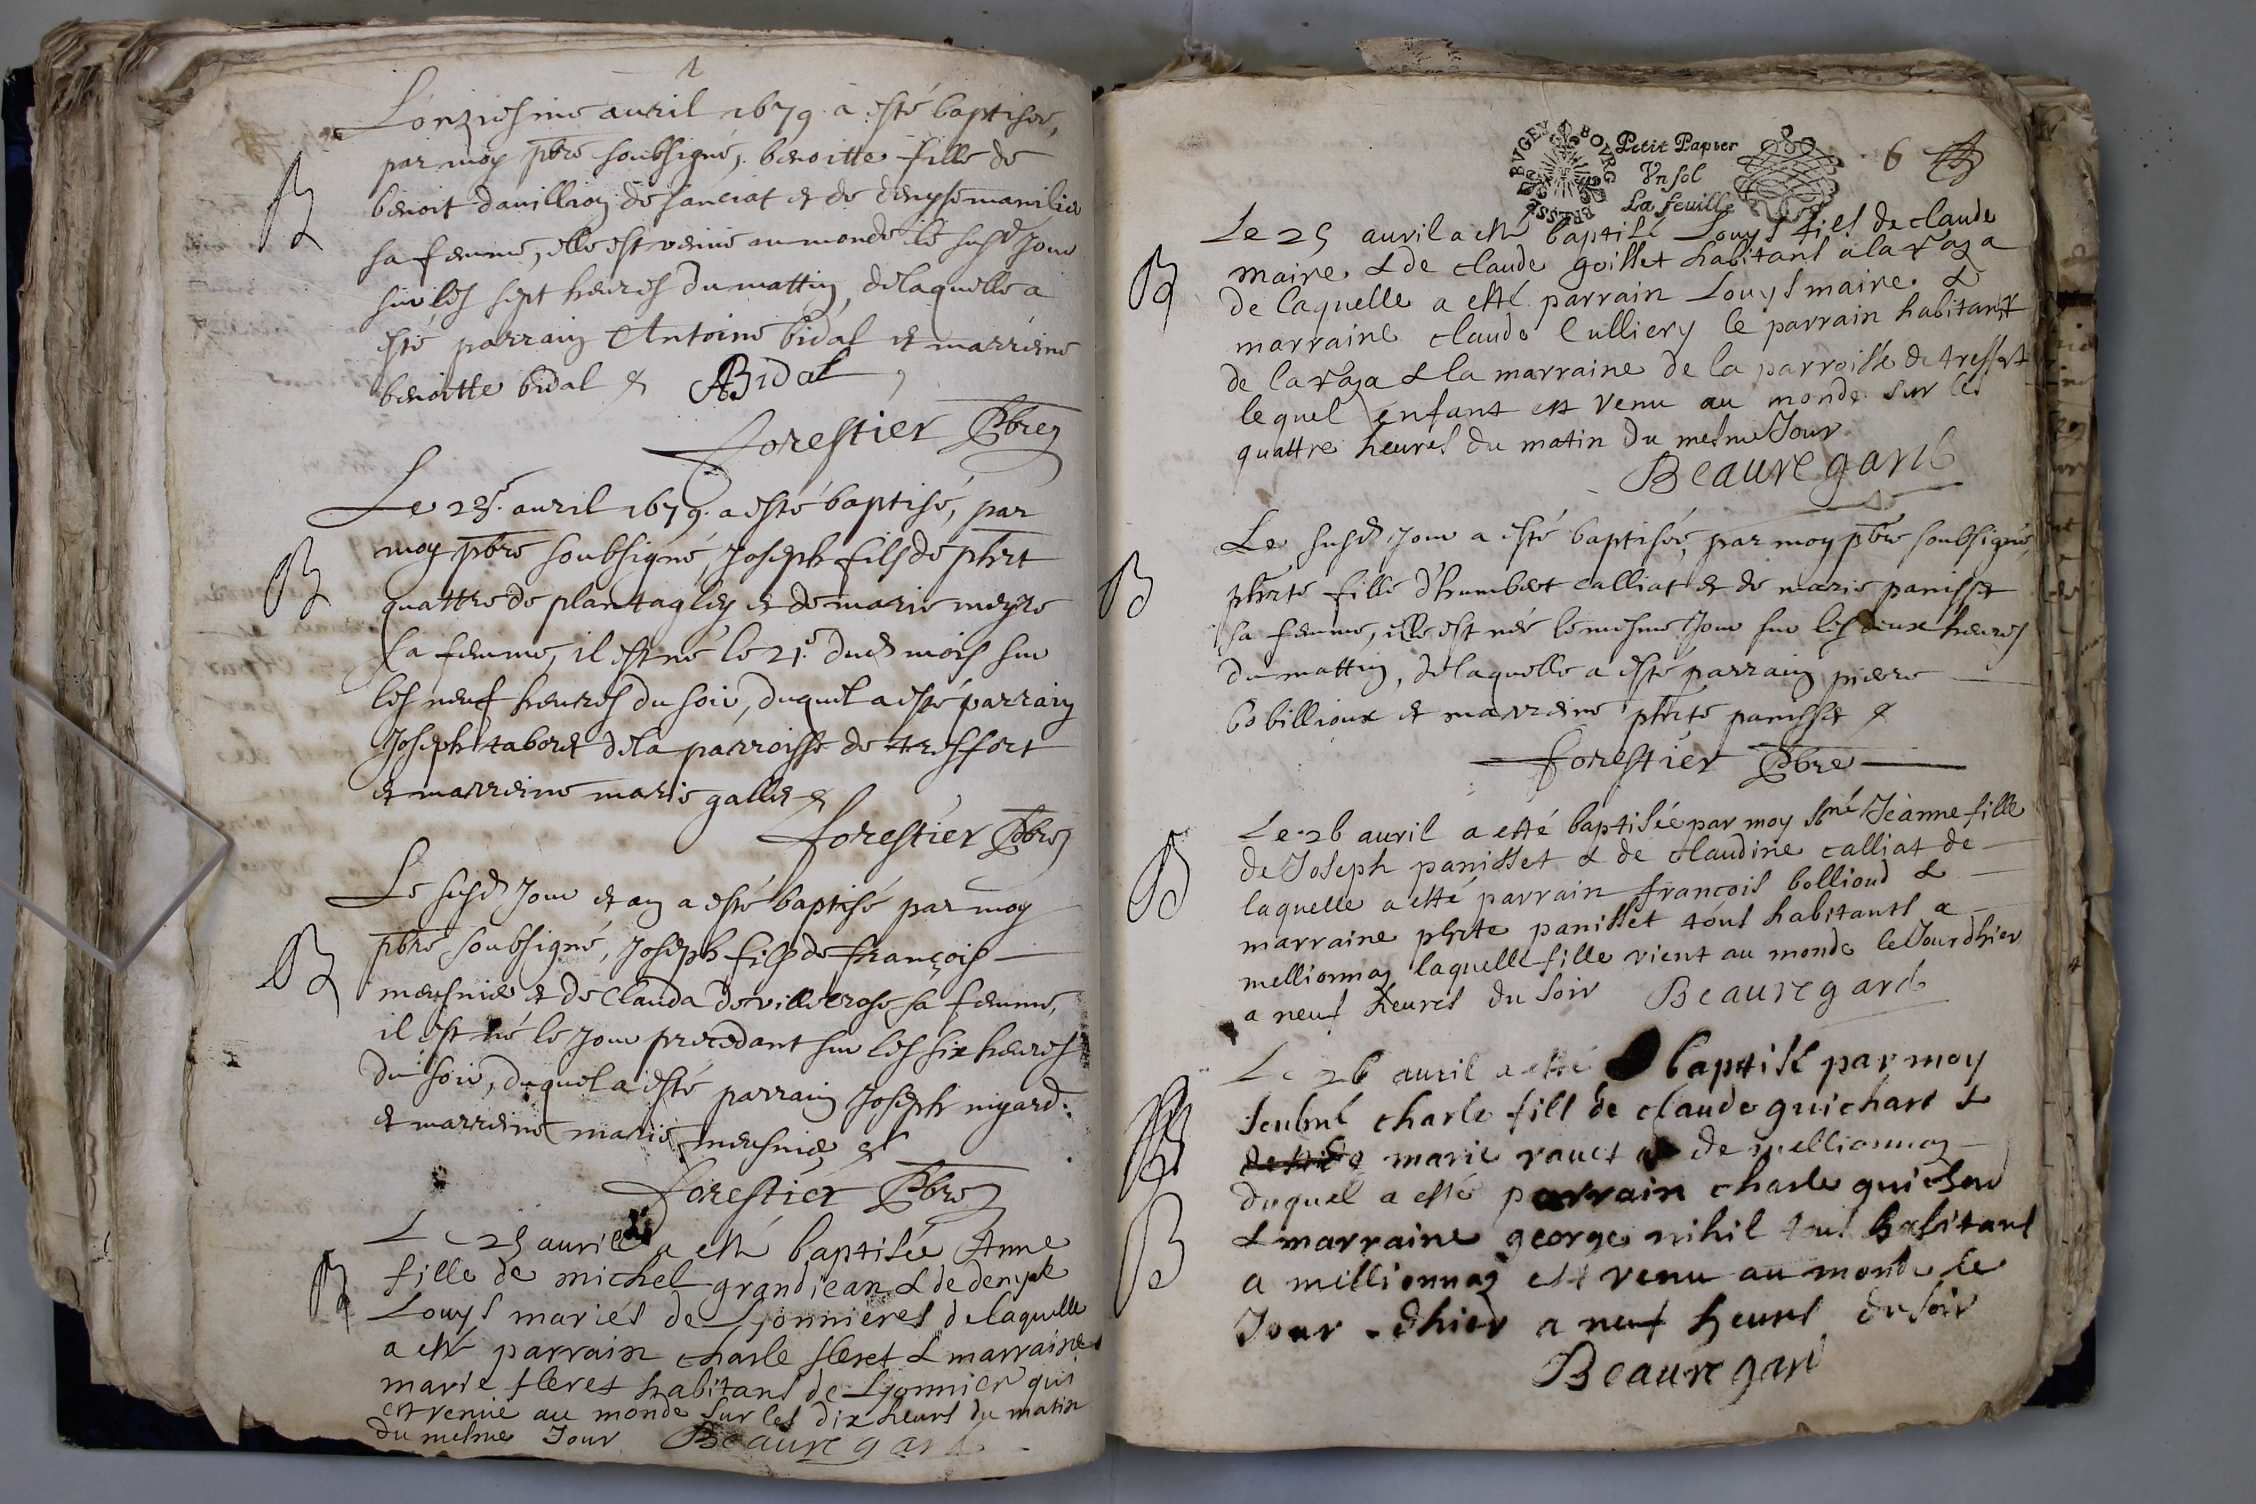 L'onziesme auril 1679. a esté baptisée,
par moy pbre soubsigné, benoitte fille de
benoit dauillion de sanciat et de denyse manilier
sa femme, elle est venue au monde le susd Jour
sur les sept heures du mattin, de laquelle a
esté parrain Antoine bidal et marreine
benoitte bidal &
ABidal
forestier Pbre
Le 23e. auril 1679. a esté baptisé, par
moy pbre soubsigné, Joseph fils de phrt
quattre de plantaglay et de marie meyre
sa femme, il est né le 21e. dud mois sur
les neuf heures du soir, duquel a esté parrain
Joseph taboret de la parroisse de treffort
et marreine marie gallet &
forestier Pbre
Le susd Jour et an a esté baptisé par moy
pbre soubsigné, Joseph fils de françois
meusnier et de Clauda de villerose sa femme,
il est né le Jour precedant sur les six heures
du soir, duquel a esté parrain Joseph nigard
et marreine marie meusnier &
forestier Pbre
Le 25 auril a esté baptisée Anne
fille de michel grandiean & de denyse
Louys mariés de Lyonnieres de laquelle
a esté parrain charle fleret & marraine
marie fleret habitans de Lyonnier qui
est venue au monde sur les dix heurs du matin
du mesme Jour Beauregard
BVGEY BOVRG BRESSE
Petit Papier
Vn sol
La feuille
6
Le 25 auril a esté baptisé Louys fils de claude
maire & de claude goisset habitans a la raza
de laquelle a esté parrain Louys maire &
marraine claude Culliery le parrain habitant
de la raza & la marraine de la parroisse de treffort
lequel enfant est venu au monde sur les
quattre heures du matin du mesme Jour
Beauregard
Le susd Jour a esté baptisée, par moy pbre soubsigné,
phrte fille d'humbert calliat et de marie panisset
sa femme, elle est née le mesme Jour sur les deux heures
du mattin, de laquelle a esté parrain pierre
bobillioux et marreine phrte panisset &
forestier Pbre
Le 26 auril a esté baptisée par moy sné Jeanne fille
de Joseph panisset & de claudine calliat de
laquelle a esté parrain francois bollioud &
marraine phrte panisset tous habitants a
mellionnaz laquelle fille vient au monde le Jour dhier
a neuf heures du soir Beauregard
Le 26 auril a esté baptisé par moy
soubné charle fils de claude guichard &
marie rauet de mellionnaz
duquel a esté parrain charle guichard
& marraine george nihil tous habitans
a millionnaz est venu au monde le
Jour dhier a neuf heures du soir
Beauregard